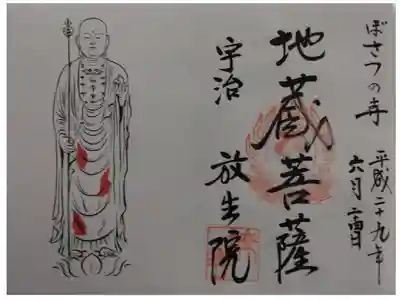 ぼさつの寺
平成二十九年
六月二四日
地蔵菩薩
宇治 放生院